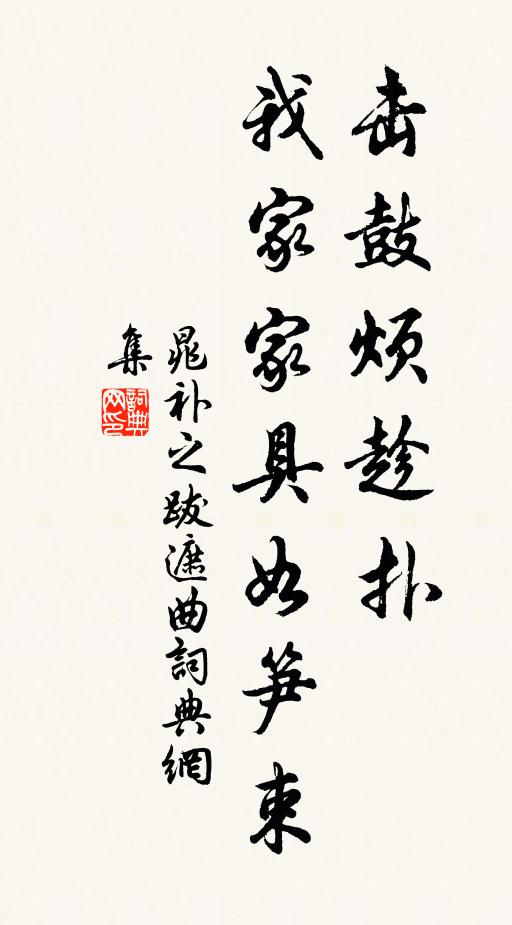 击鼓烦趁扑
我家家具如笋束
晁补之跋遮曲詞典網
集
詞典
网印